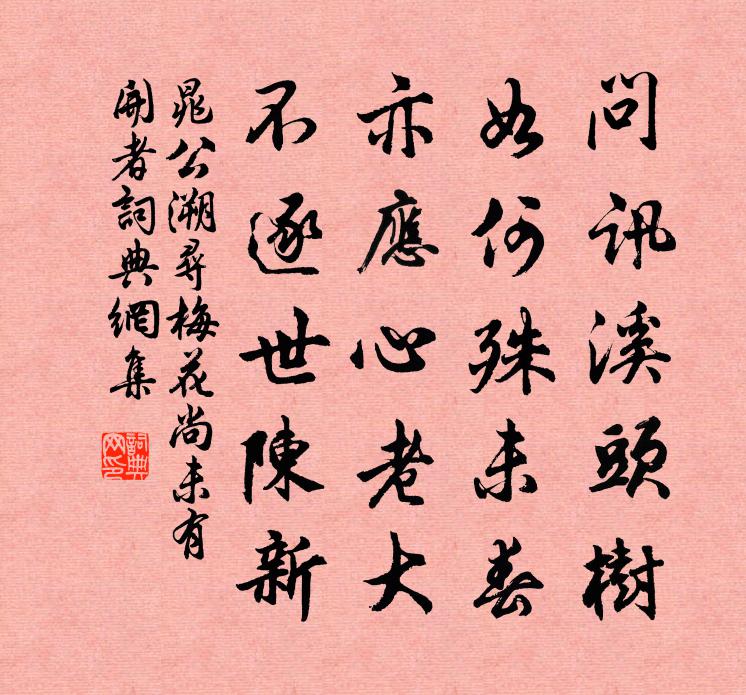 問訊溪頭樹
如何殊未春
亦應心老大
不逐世陳新
晁公溯尋梅花尚未有
開者詞典網集
詞典
网印